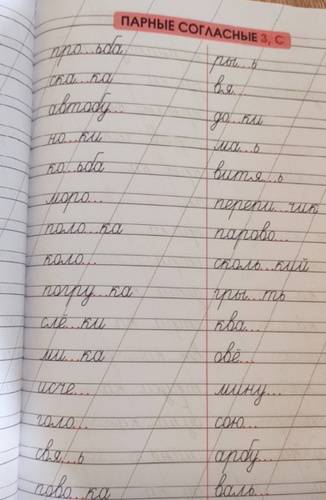 ПАРНЫЕ СОГЛАСНЫЕ З, С
про...ьба
ска...ка
автобу...
но...ки
ко...ьба
моро...
поло...ка
коло...
погру...ка
слё...ки
ми...ка
исче...
голо...
свя...ь
пово...ка
ры...ь
вя...
до...ки
ма...ь
витя...ь
перепи...чик
парово...
сколь...кий
гры...ть
ква...
овё...
мину...
сою...
арбу...
валь...